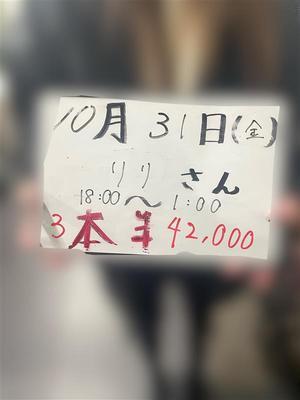 10月 31日(金)
りりさん
18:00〜1:00
3本 ¥42,000